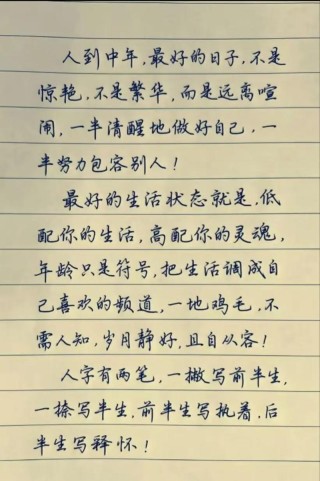 人到中年,最好的日子,不是
惊艳,不是繁华,而是远离喧
闹,一半清醒地做好自己,一
半努力包容别人!
最好的生活状态就是,低
配你的生活,高配你的灵魂,
年龄只是符号,把生活调成自
己喜欢的频道,一地鸡毛,不
需人知,岁月静好,且自从容!
人字有两笔,一撇写前半生,
一捺写半生,前半生写执着,后
半生写释怀!